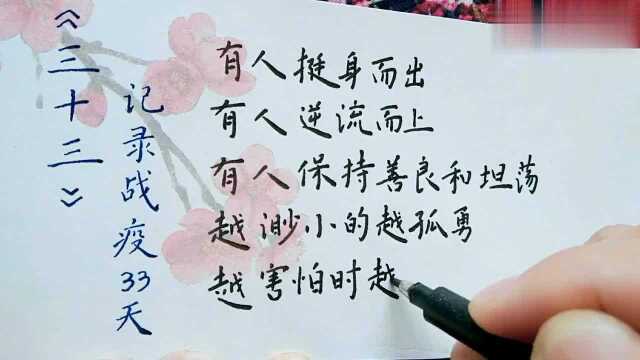 《三十三》
记录战疫33天
有人挺身而出
有人逆流而上
有人保持善良和坦荡
越渺小的越孤勇
越害怕时越